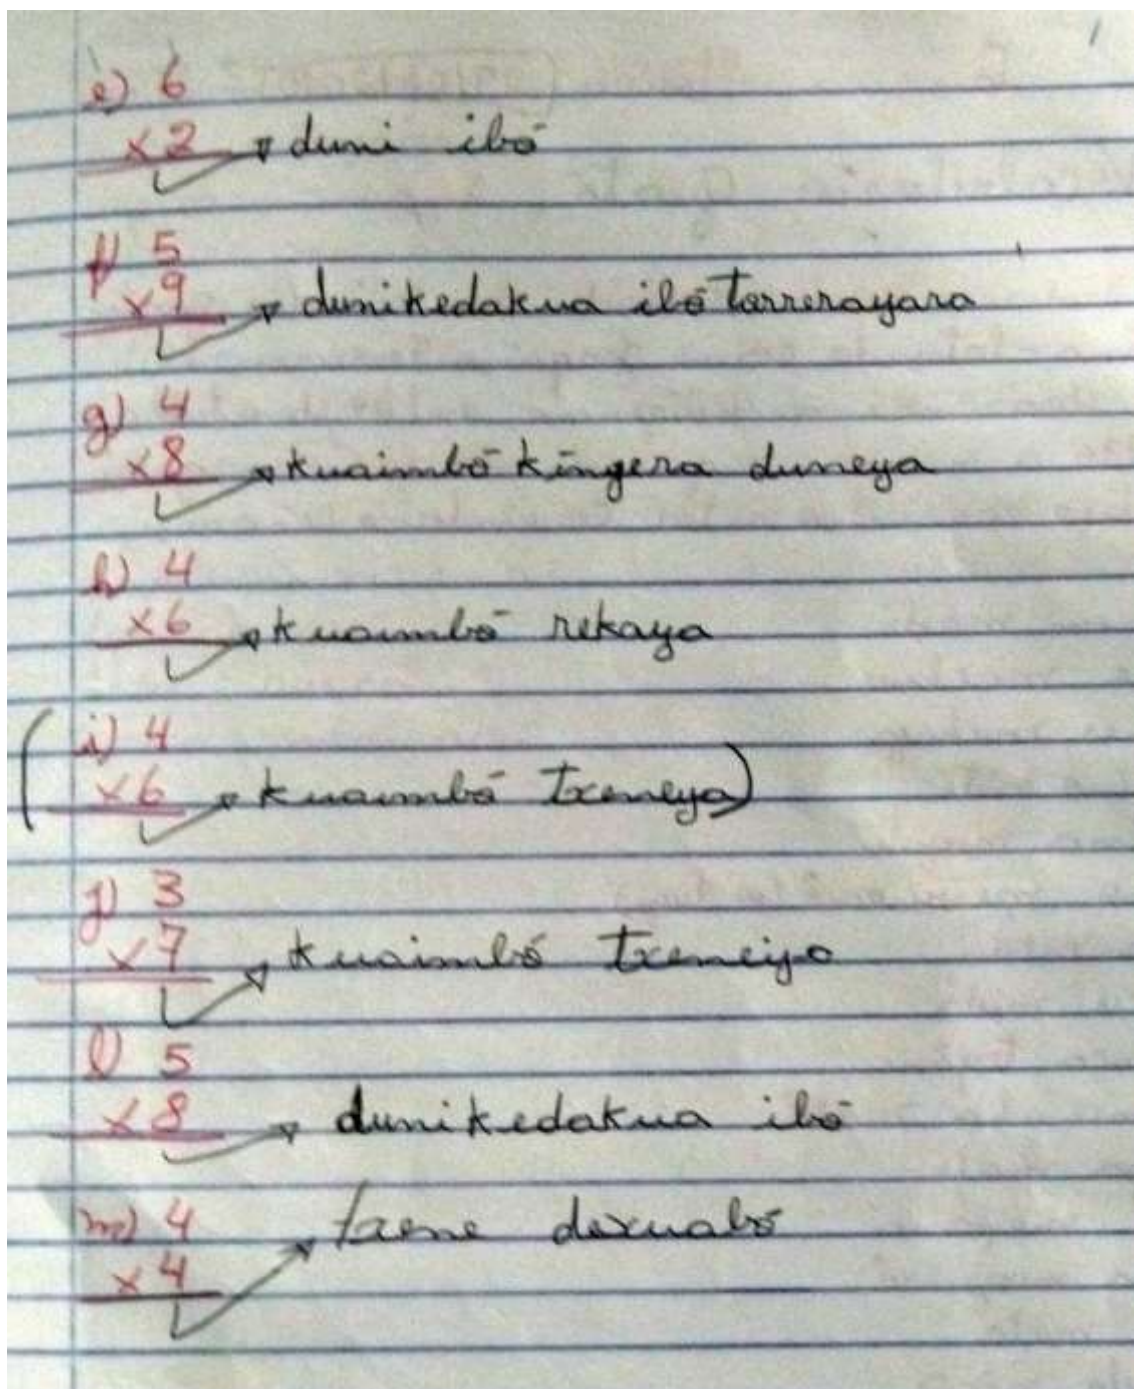 e) 6
x2 duni ibó
f) 5
x9 dunikedakua ibó tarrerayara
g) 4
x8 kuaimbó kingera duneya
h) 4
x6 kuaimbó rekaya
(i) 4
x6 kuaimbó txeneya)
j) 3
x7 kuaimbó txeneiyo
l) 5
x8 dunikedakua ibó
m) 4
x4 txene dexuabó